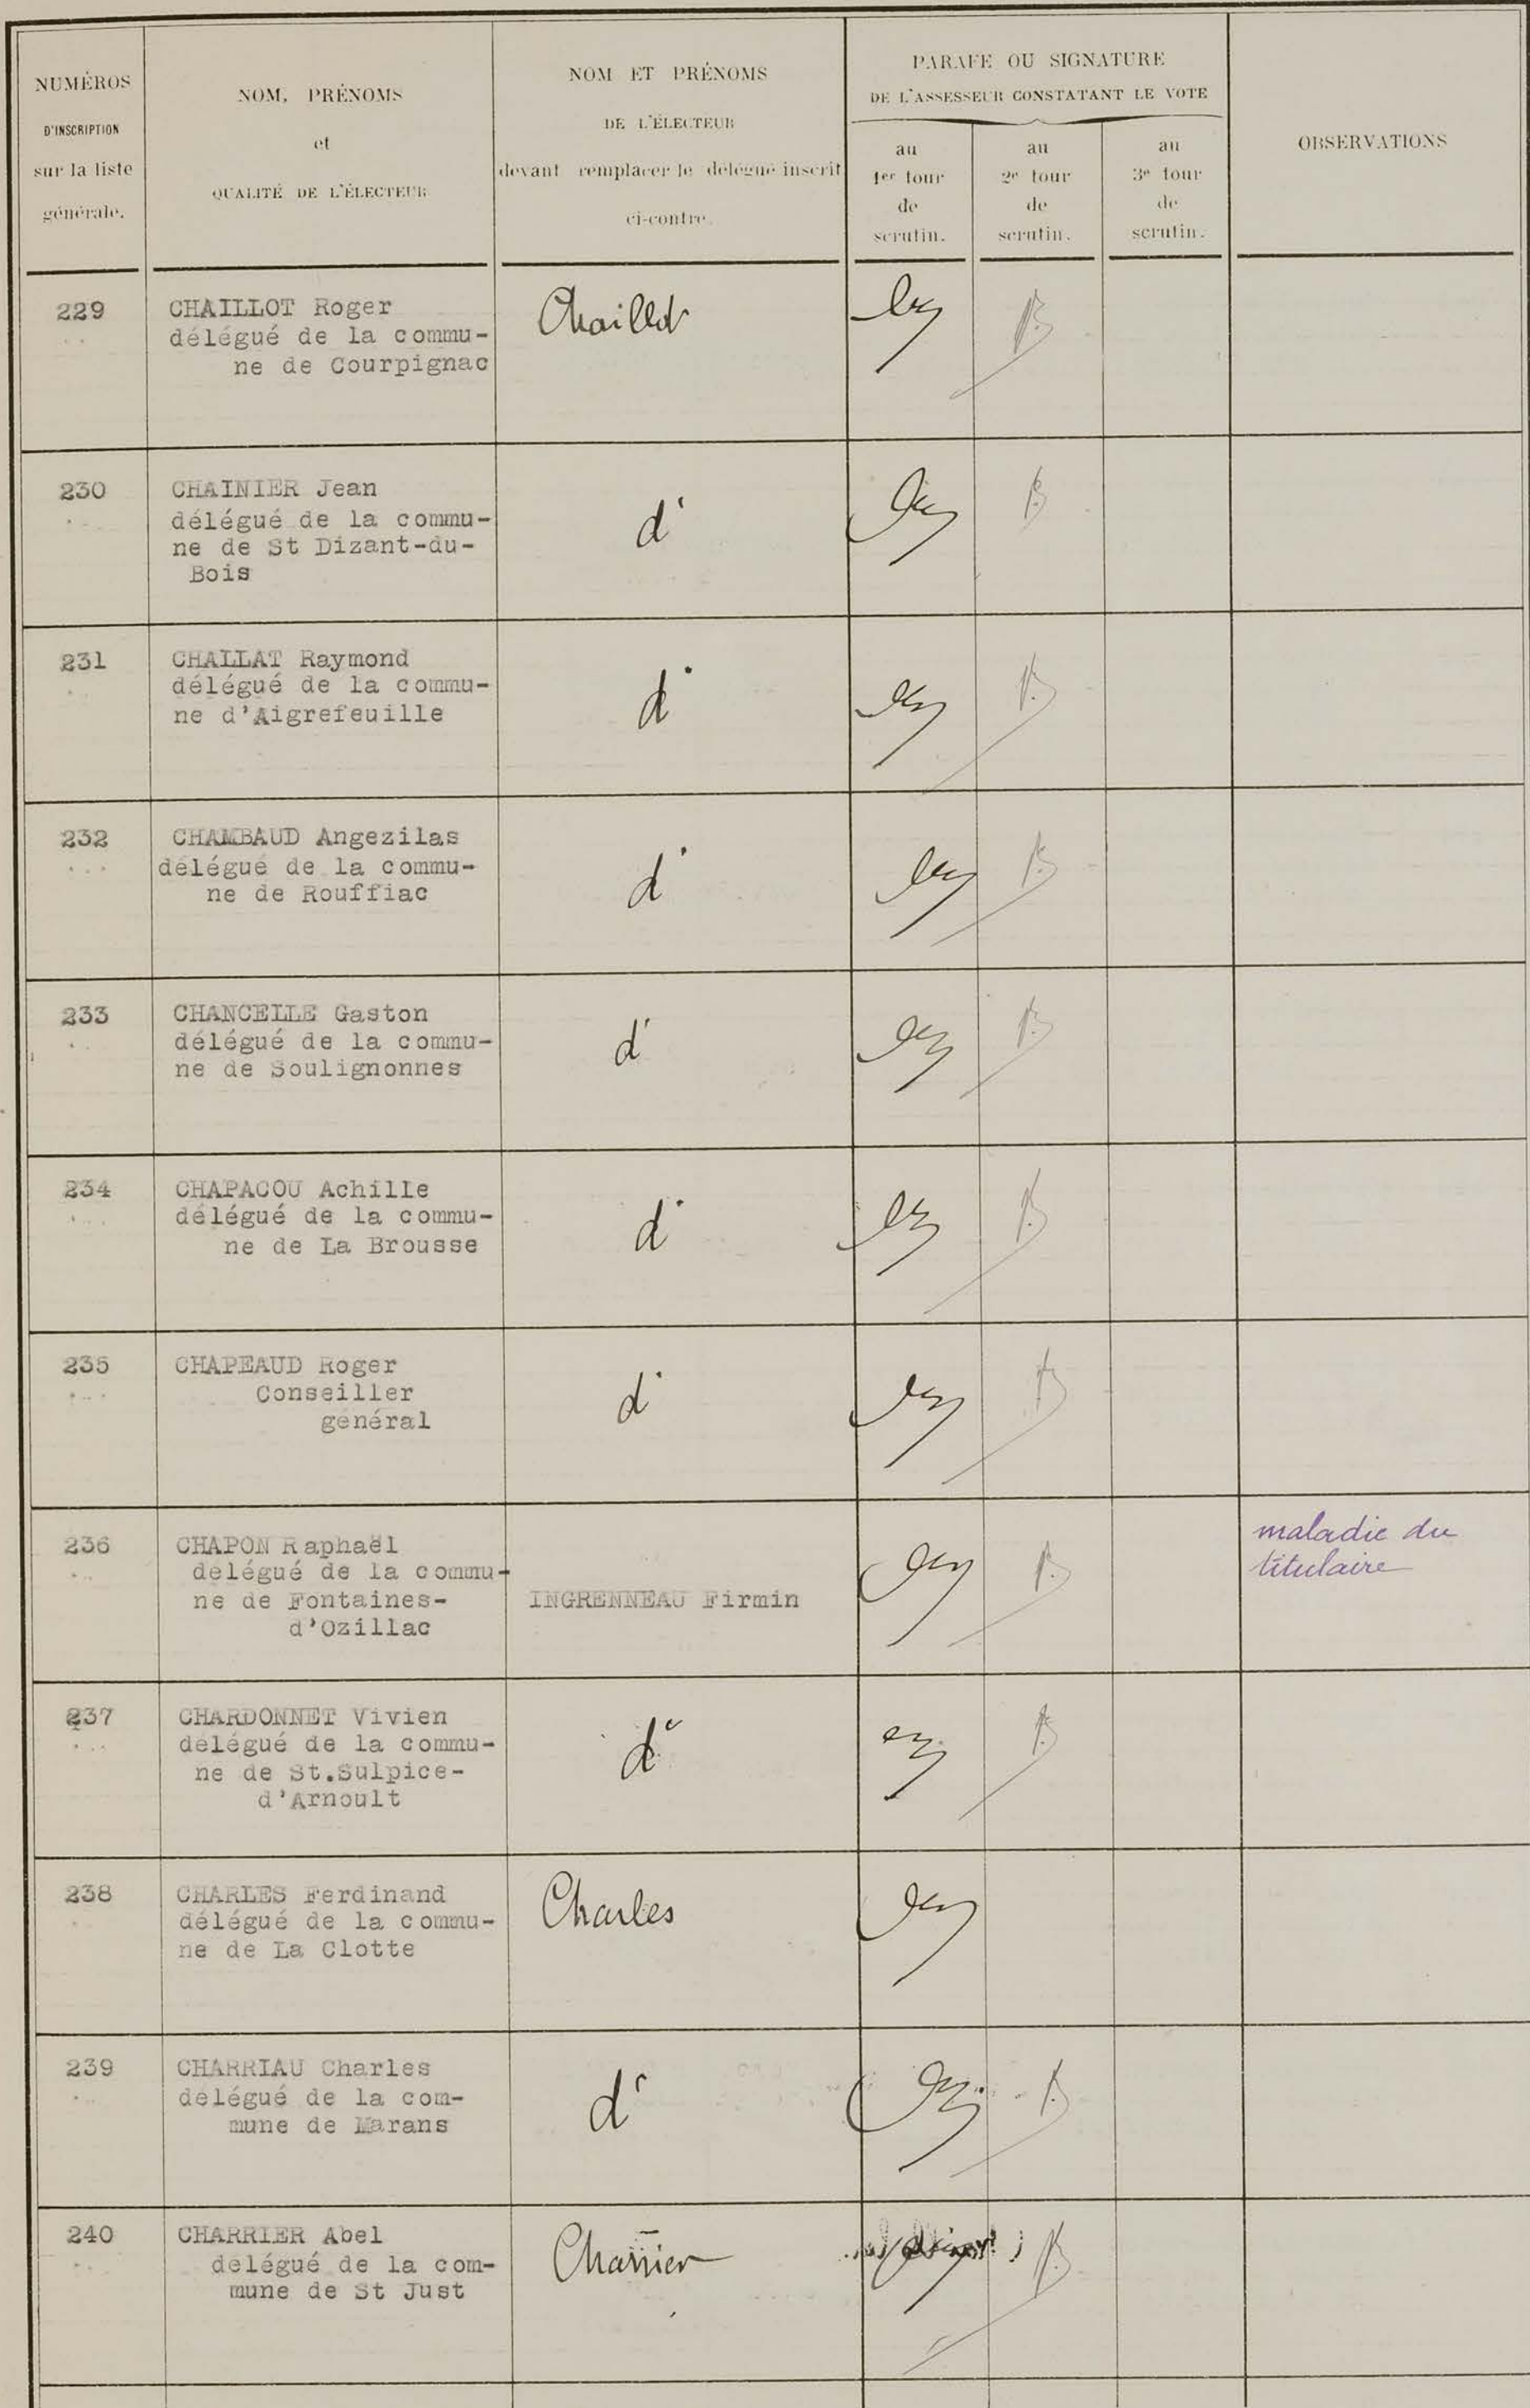 NUMÉROS
D'INSCRIPTION
sur la liste
générale.
NOM, PRÉNOMS
et
QUALITÉ DE L'ÉLECTEUR
NOM ET PRÉNOMS
DE L'ÉLECTEUR
devant remplacer le délégué inscrit
ci-contre.
PARAFE OU SIGNATURE
DE L'ASSESSEUR CONSTATANT LE VOTE
au
1er tour
de
scrutin.
au
2e tour
de
scrutin.
au
3e tour
de
scrutin.
OBSERVATIONS
229
CHAILLOT Roger
délégué de la commu-
ne de Courpignac
Chaillot
230
CHAINIER Jean
délégué de la commu-
ne de St Dizant-du-
Bois
d°
231
CHALLAT Raymond
délégué de la commu-
ne d'Aigrefeuille
d°
232
CHAMBAUD Angezilas
délégué de la commu-
ne de Rouffiac
d°
233
CHANCELLE Gaston
délégué de la commu-
ne de Soulignonnes
d°
234
CHAPACOU Achille
délégué de la commu-
ne de La Brousse
d°
235
CHAPEAUD Roger
Conseiller
genéral
d°
236
CHAPON Raphaël
delégué de la commu-
ne de Fontaines-
d'Ozillac
INGRENNEAU Firmin
maladie du
titulaire
237
CHARDONNET Vivien
delégué de la commu-
ne de St.Sulpice-
d'Arnoult
d°
238
CHARLES Ferdinand
délégué de la commu-
ne de La Clotte
Charles
239
CHARRIAU Charles
delégué de la com-
mune de Marans
d°
240
CHARRIER Abel
delégué de la com-
mune de St Just
Charrier